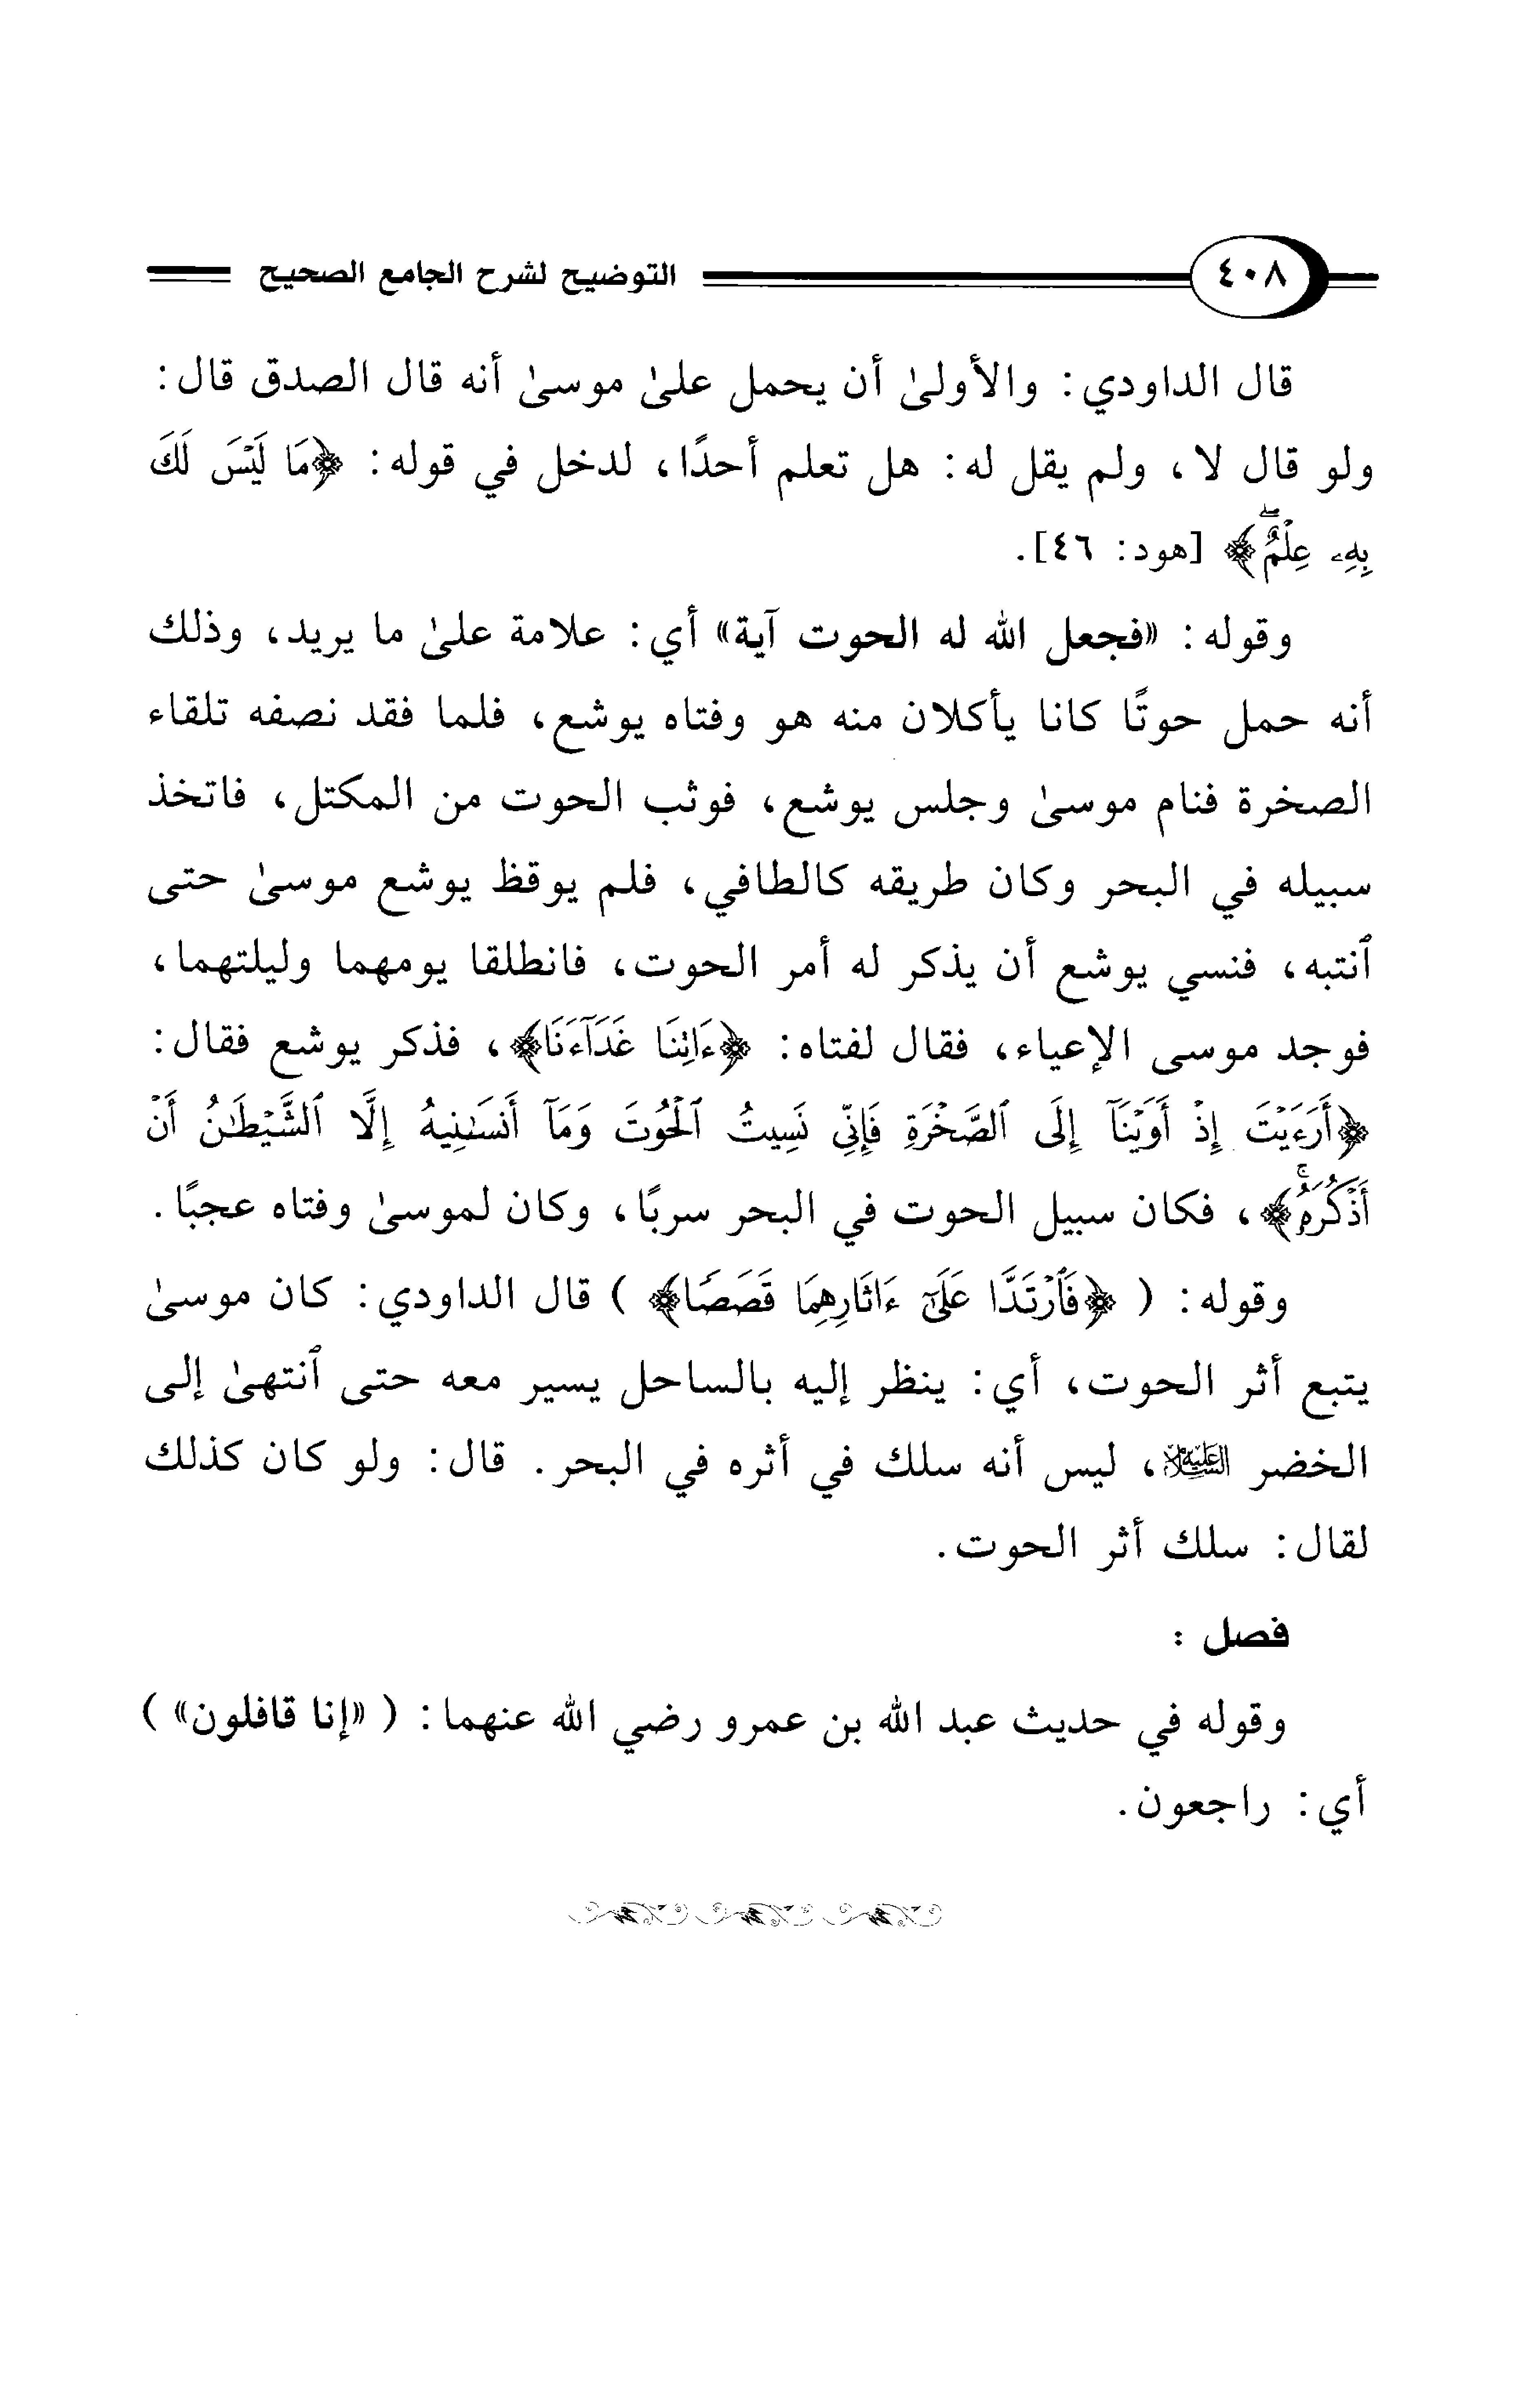 ٤٠٨ التوضيح لشرح الجامع الصحيح
قال الداودي: والأولىٰ أن يحمل علىٰ موسىٰ أنه قال الصدق قال:
ولو قال لا، ولم يقل له: هل تعلم أحدًا، لدخل في قوله: ﴿مَا لَيْسَ لَكَ
بِهِۦ عِلْمٌۖ﴾ [هود: ٤٦].
وقوله: «فجعل الله له الحوت آية» أي: علامة علىٰ ما يريد، وذلك
أنه حمل حوتًا كانا يأكلان منه هو وفتاه يوشع، فلما فقد نصفه تلقاء
الصخرة فنام موسىٰ وجلس يوشع، فوثب الحوت من المكتل، فاتخذ
سبيله في البحر وكان طريقه كالطافي، فلم يوقظ يوشع موسىٰ حتى
ٱنتبه، فنسي يوشع أن يذكر له أمر الحوت، فانطلقا يومهما وليلتهما،
فوجد موسى الإعياء، فقال لفتاه: ﴿ءَاتِنَا غَدَآءَنَا﴾، فذكر يوشع فقال:
﴿أَرَءَيْتَ إِذْ أَوَيْنَآ إِلَى ٱلصَّخْرَةِ فَإِنِّي نَسِيتُ ٱلْحُوتَ وَمَآ أَنسَىٰنِيهُ إِلَّا ٱلشَّيْطَٰنُ أَنْ
أَذْكُرَهُۥۚ﴾، فكان سبيل الحوت في البحر سربًا، وكان لموسىٰ وفتاه عجبًا.
وقوله: ( ﴿فَٱرْتَدَّا عَلَىٰٓ ءَاثَارِهِمَا قَصَصًا﴾ ) قال الداودي: كان موسىٰ
يتبع أثر الحوت، أي: ينظر إليه بالساحل يسير معه حتى ٱنتهىٰ إلى
الخضر عليه السلام، ليس أنه سلك في أثره في البحر. قال: ولو كان كذلك
لقال: سلك أثر الحوت.
فصل :
وقوله في حديث عبد الله بن عمرو رضي الله عنهما: ( «إنا قافلون» )
أي: راجعون.